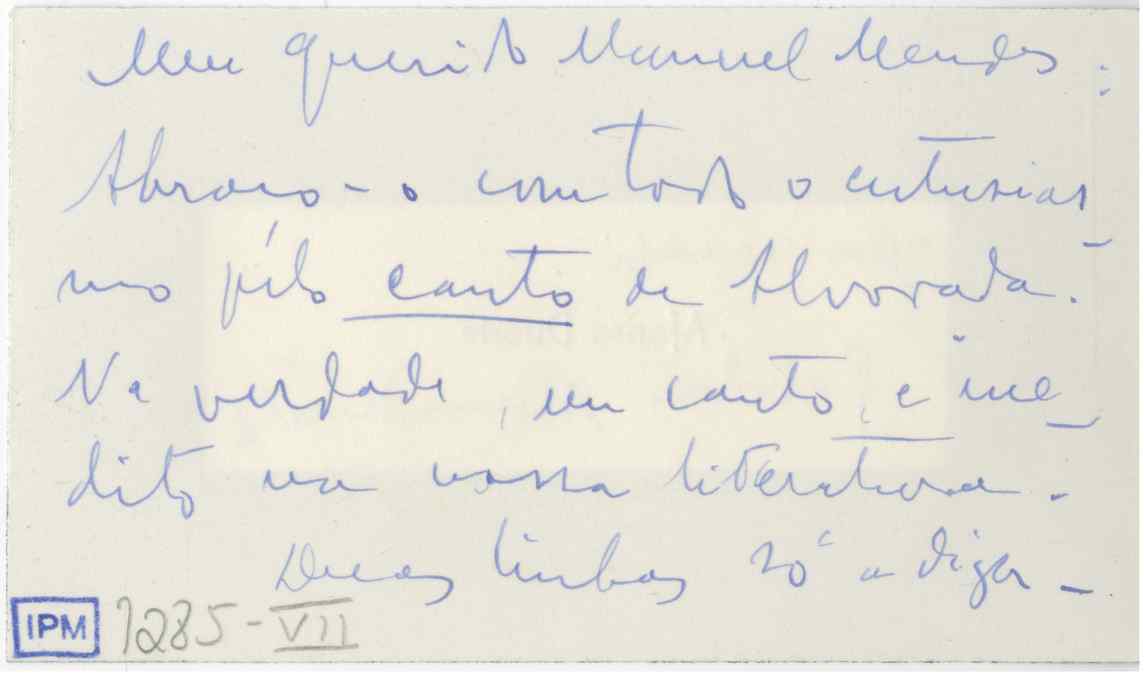 Meu querido Manuel Mendes:
Abraço-o com todo o entusias-
mo pelo canto de Alvorada.
Na verdade, um canto, e iné-
dito na nossa literatura.
Duas linhas só a dizer-
IPM 1285-VII